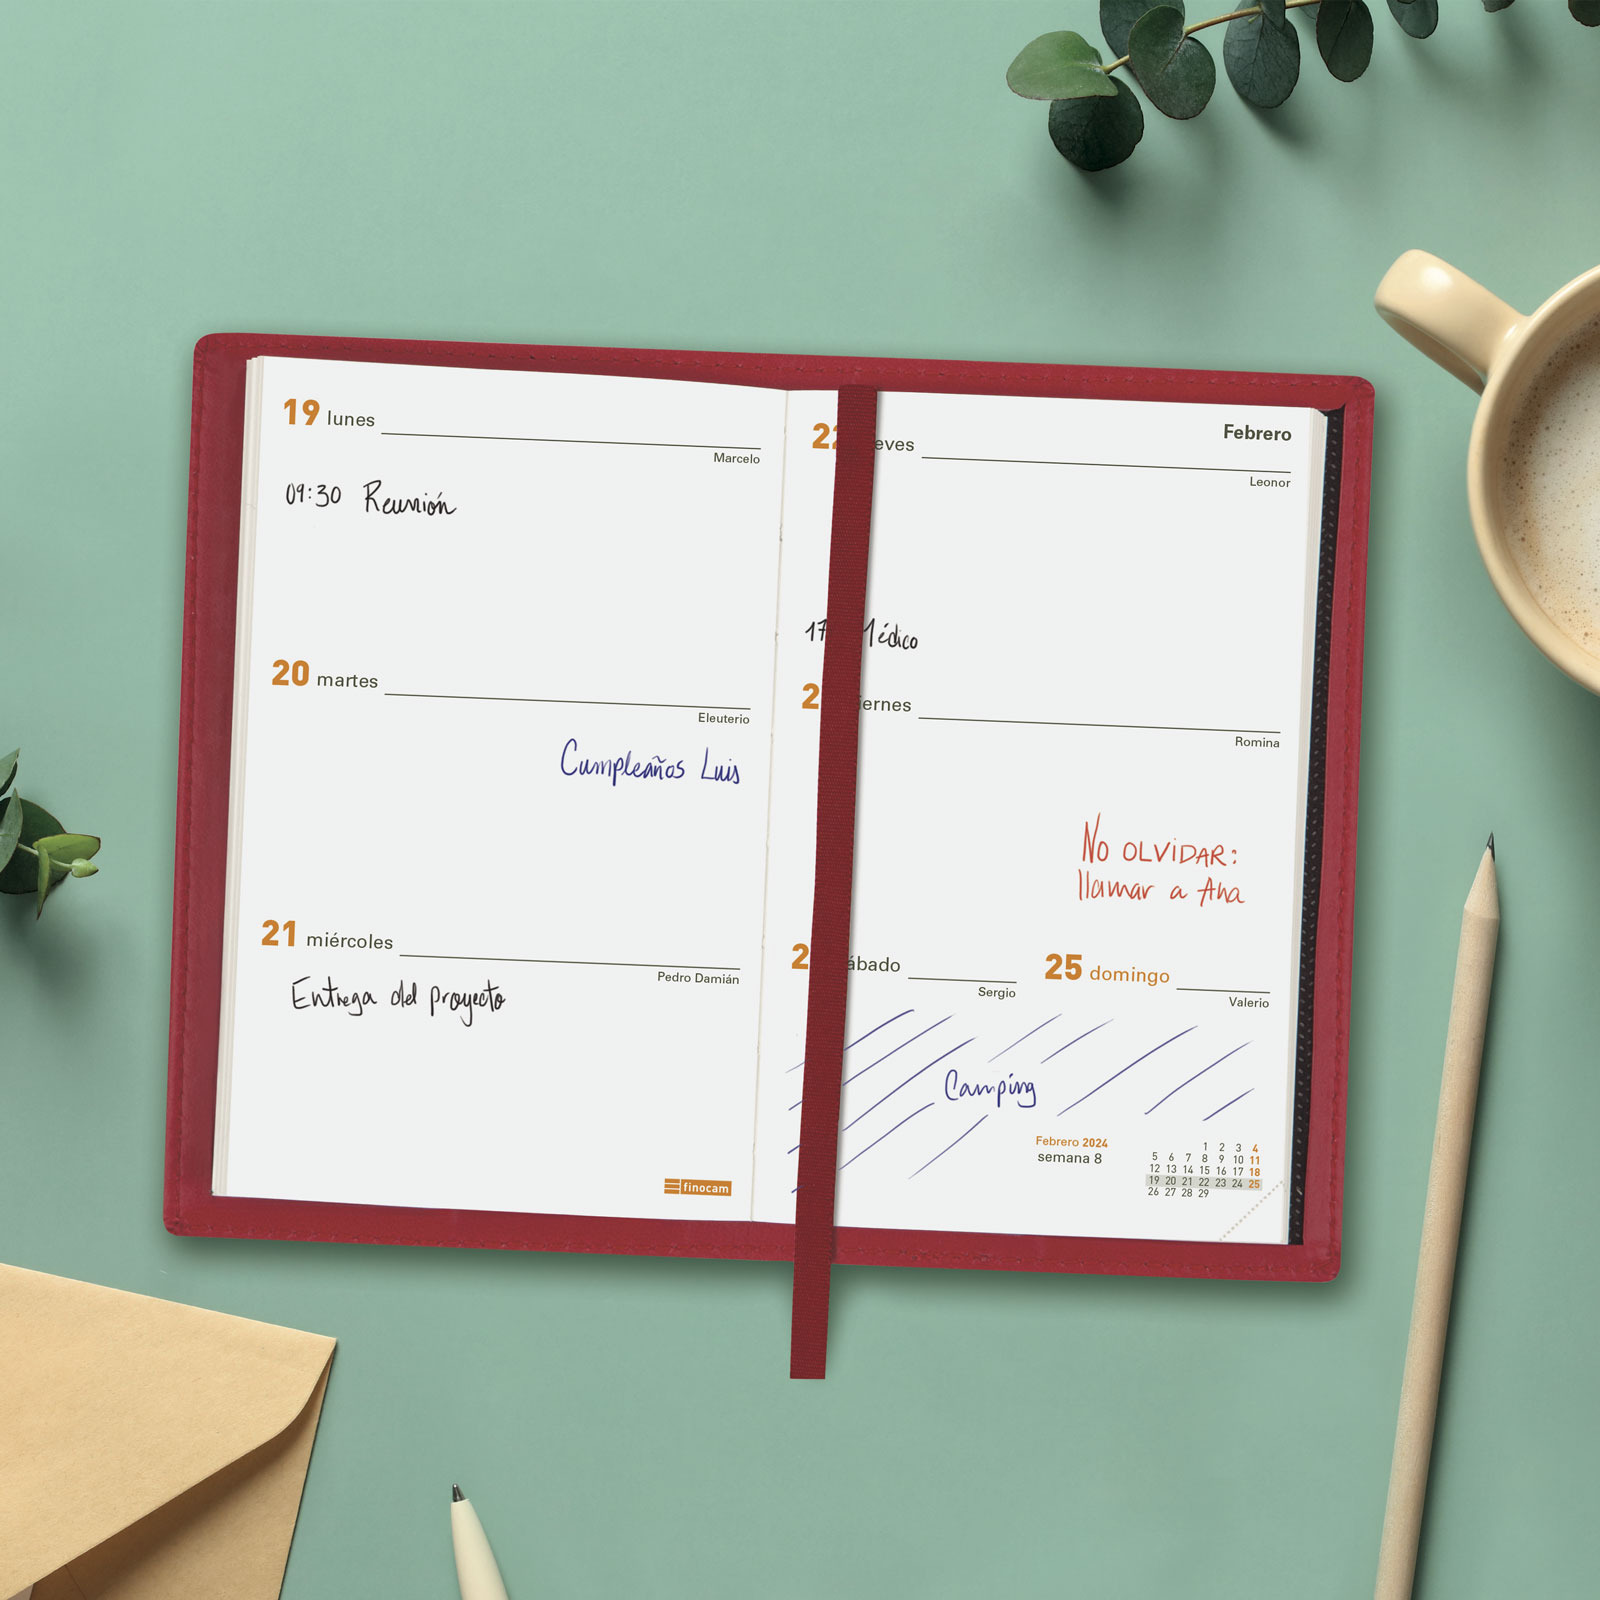 19 lunes
Marcelo
09:30 Reunión
20 martes
Eleuterio
Cumpleaños Luis
21 miércoles
Pedro Damián
Entrega del proyecto
finocam
Febrero
22 eves
Leonor
17 Médico
2 iernes
Romina
No OLVIDAR:
llamar a Ana
2 ábado
Sergio
25 domingo
Valerio
Camping
Febrero 2024
semana 8
1 2 3 4
5 6 7 8 9 10 11
12 13 14 15 16 17 18
19 20 21 22 23 24 25
26 27 28 29